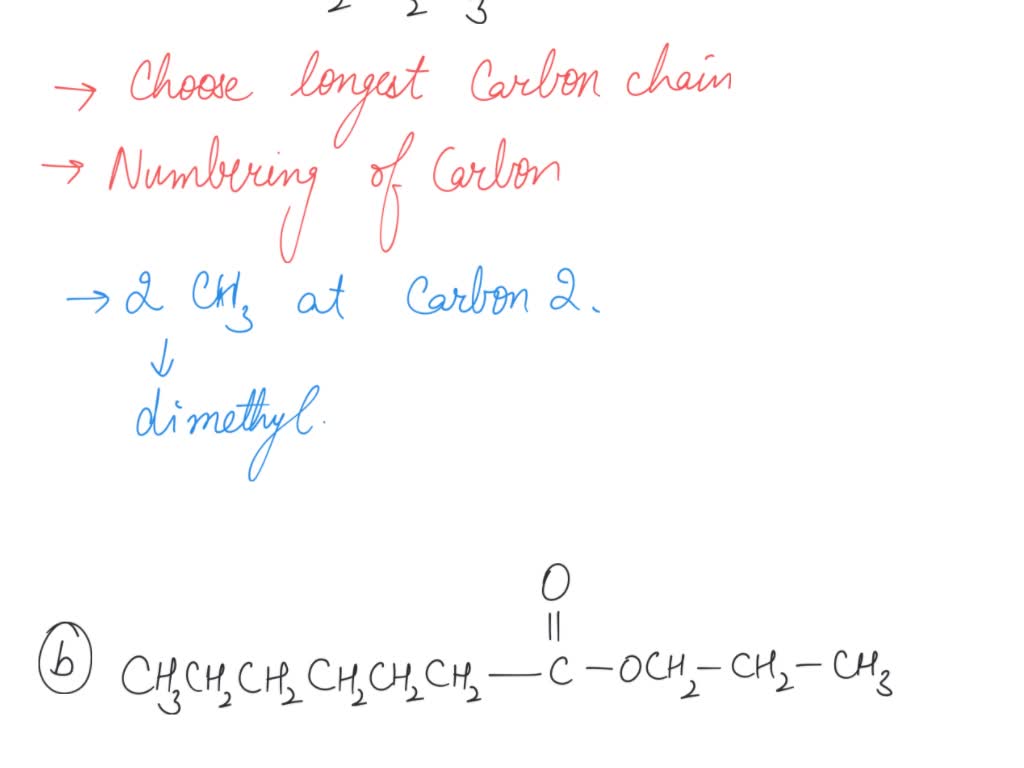 2 2 3
→ Choose longest Carbon chain
→ Numbering of Carbon
→ 2 CH3 at Carbon 2.
↓
dimethyl.
O
||
(b) CH3CH2CH2CH2CH2CH2—C—OCH2—CH2—CH3